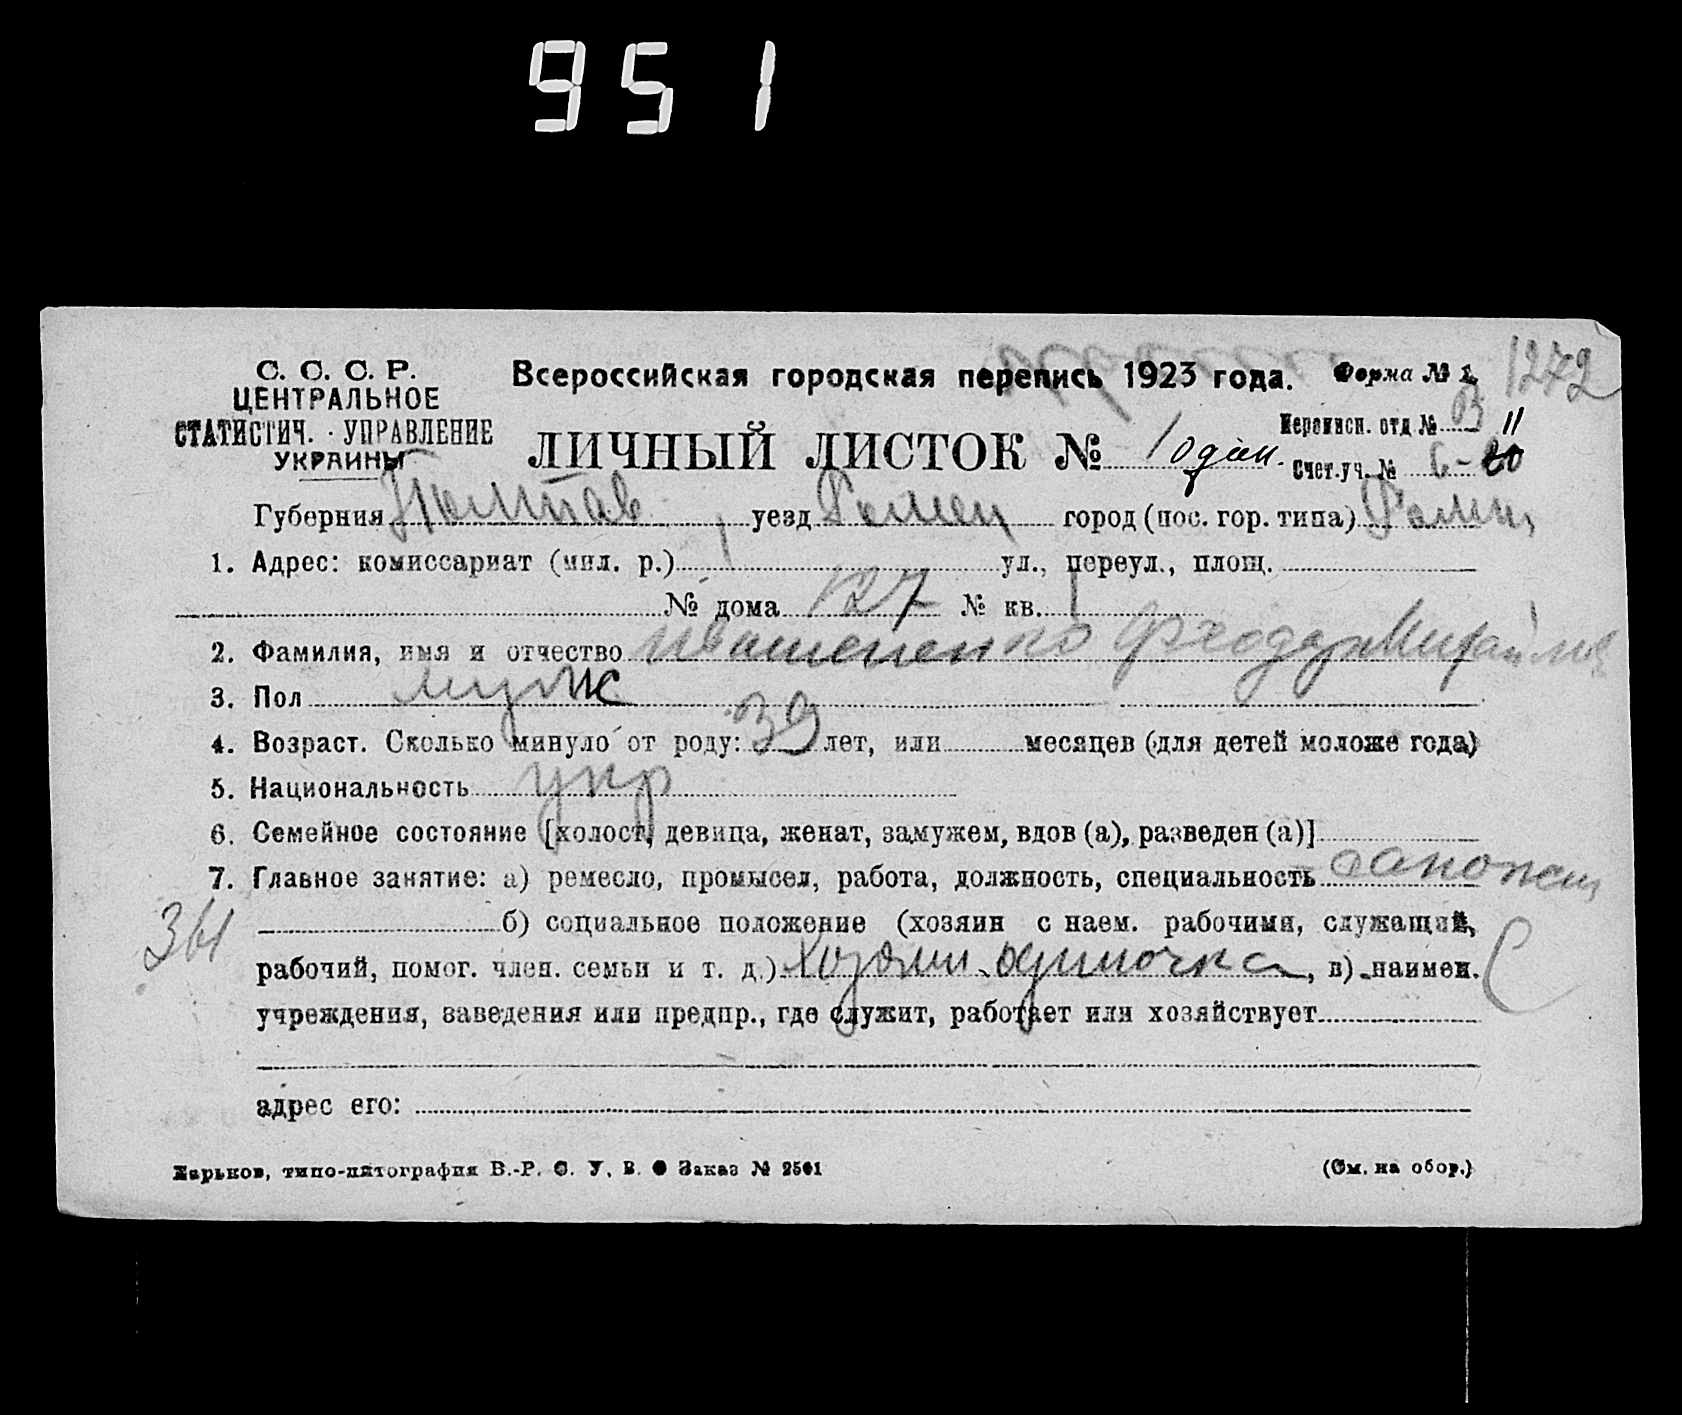 951
С. С. С. Р.
ЦЕНТРАЛЬНОЕ
СТАТИСТИЧ. УПРАВЛЕНИЕ
УКРАИНЫ
Всероссийская городская перепись 1923 года. Форма № 1. 1272
ЛИЧНЫЙ ЛИСТОК № 1 один.
Переписн. отд № 3 11
Счет. уч. № 6-20
Губерния Полтав уезд Ромен город (пос. гор. типа) Ромны
1. Адрес: комиссариат (мил. р.) 1 ул., переул., площ.
№ дома 127 № кв. 1
2. Фамилия, имя и отчество Ивашененко Феодор Михайлов
3. Пол муж
4. Возраст. Сколько минуло от роду: 39 лет, или месяцев (для детей моложе года)
5. Национальность укр
6. Семейное состояние [холост, девица, женат, замужем, вдов (а), разведен (а)]
7. Главное занятие: а) ремесло, промысел, работа, должность, специальность сапожн
34
б) социальное положение (хозяин с наем. рабочими, служащий,
рабочий, помог. член. семьи и т. д.) хозяин одиночка, в) наимен.
С
учреждения, заведения или предпр., где служит, работает или хозяйствует
адрес его:
Харьков, типо-литография В.-Р. С. У. В. Заказ № 2501 (См. на обор.)